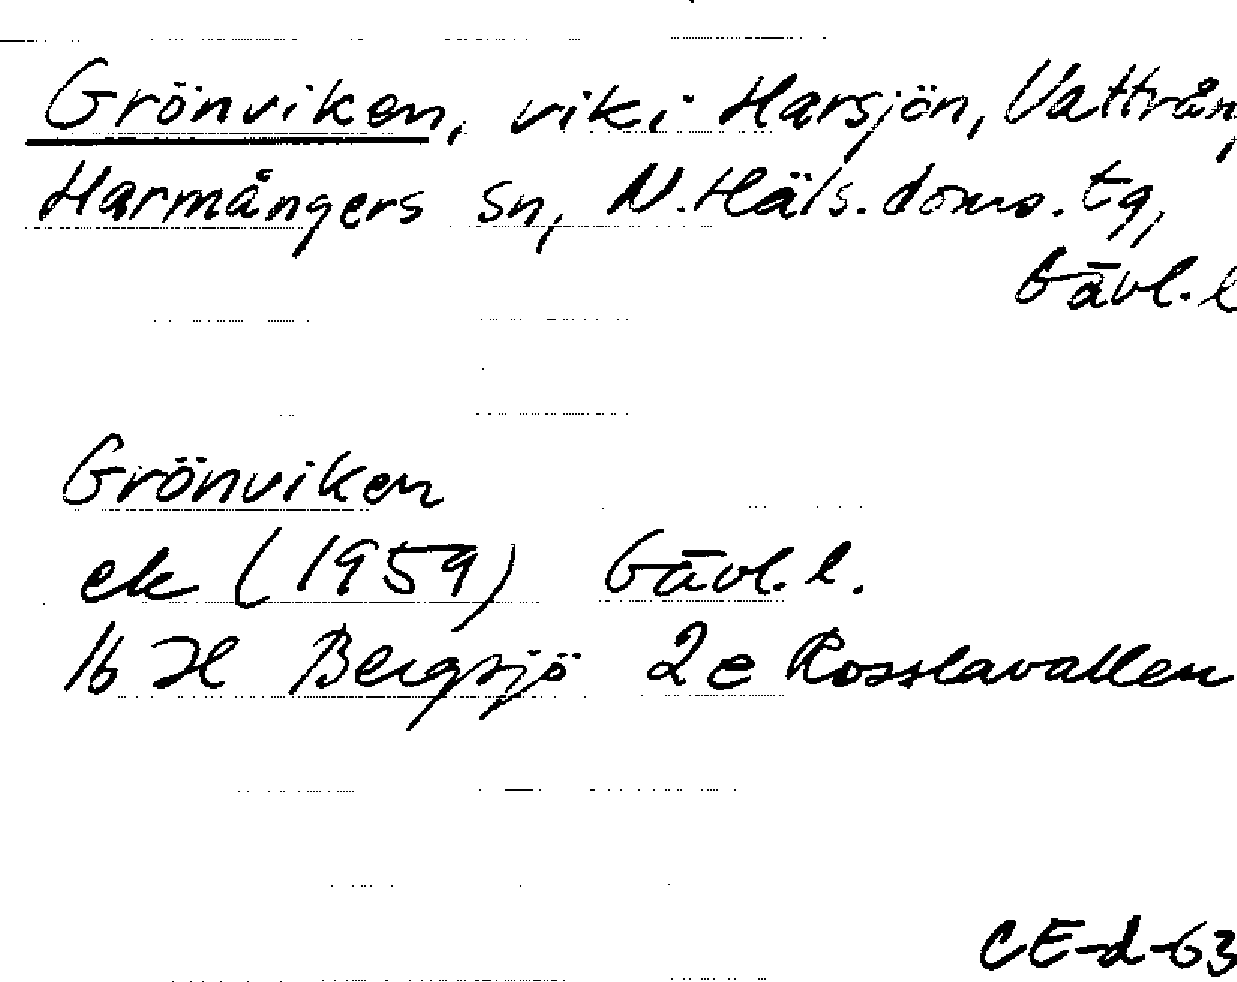 Grönviken, vik i Harsjön, Vattrån,
Harmångers sn, N. Häls. doms. tg,
Gävl. l
Grönviken
ek (1959) Gävl. l.
16 H Bergsjö 2e Rosslavallen
CE-d-63